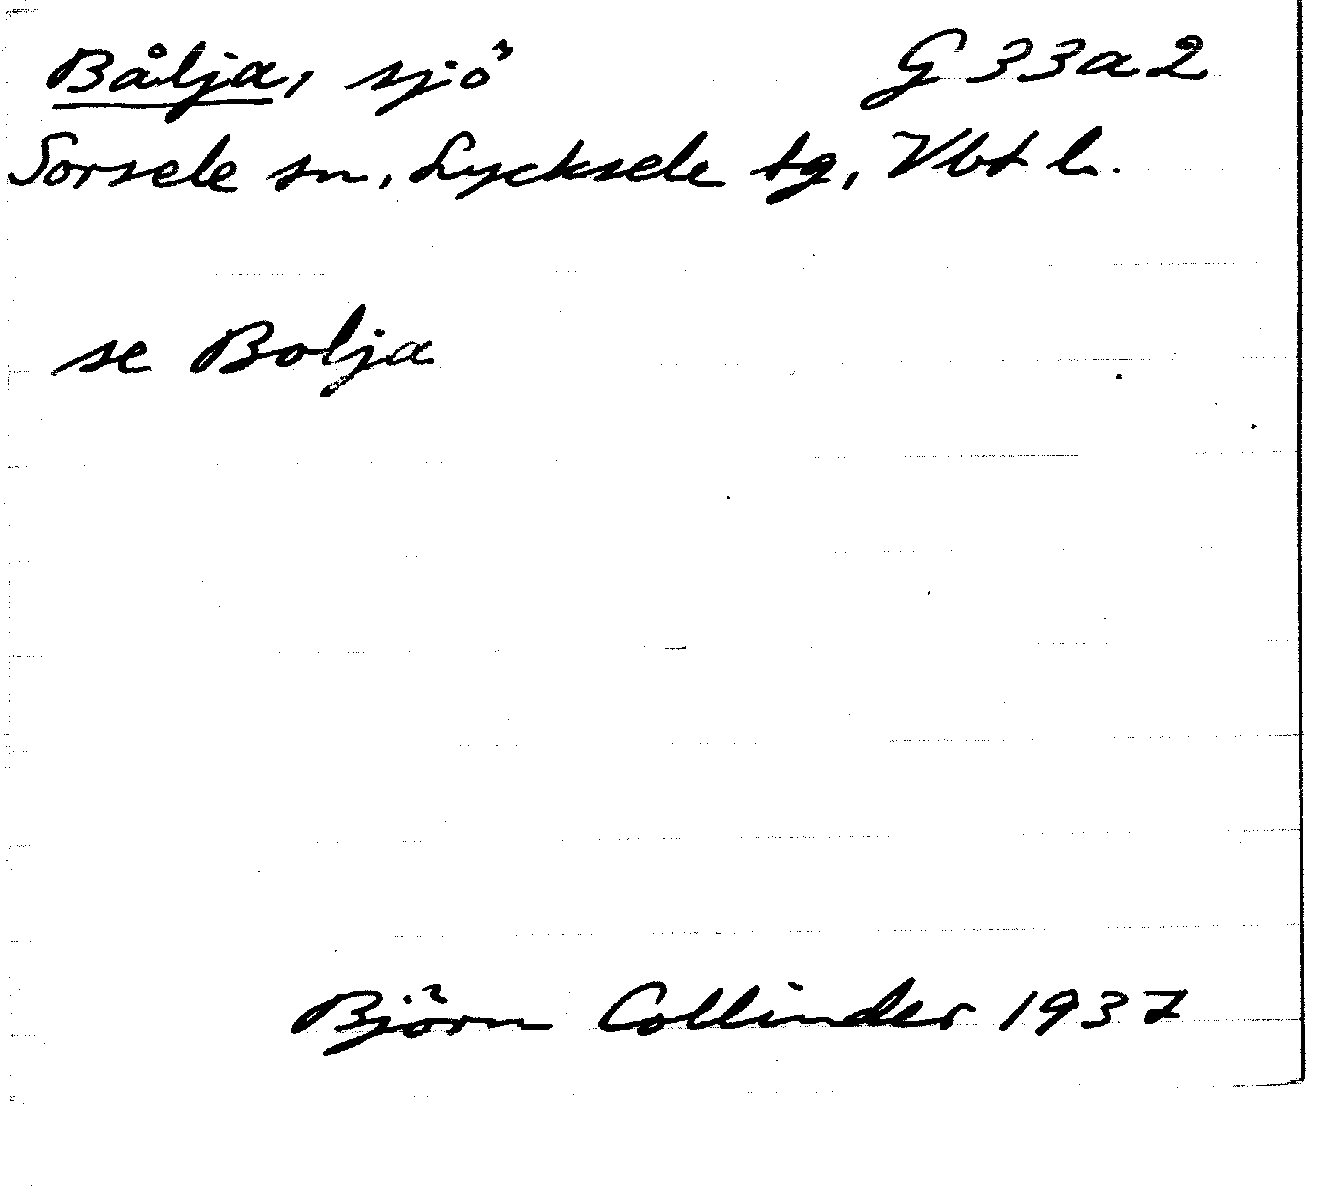 Bålja, sjö G 33a2
Sorsele sn, Lycksele tg, Vbt l.
se Bolja
Björn Collinder 1937